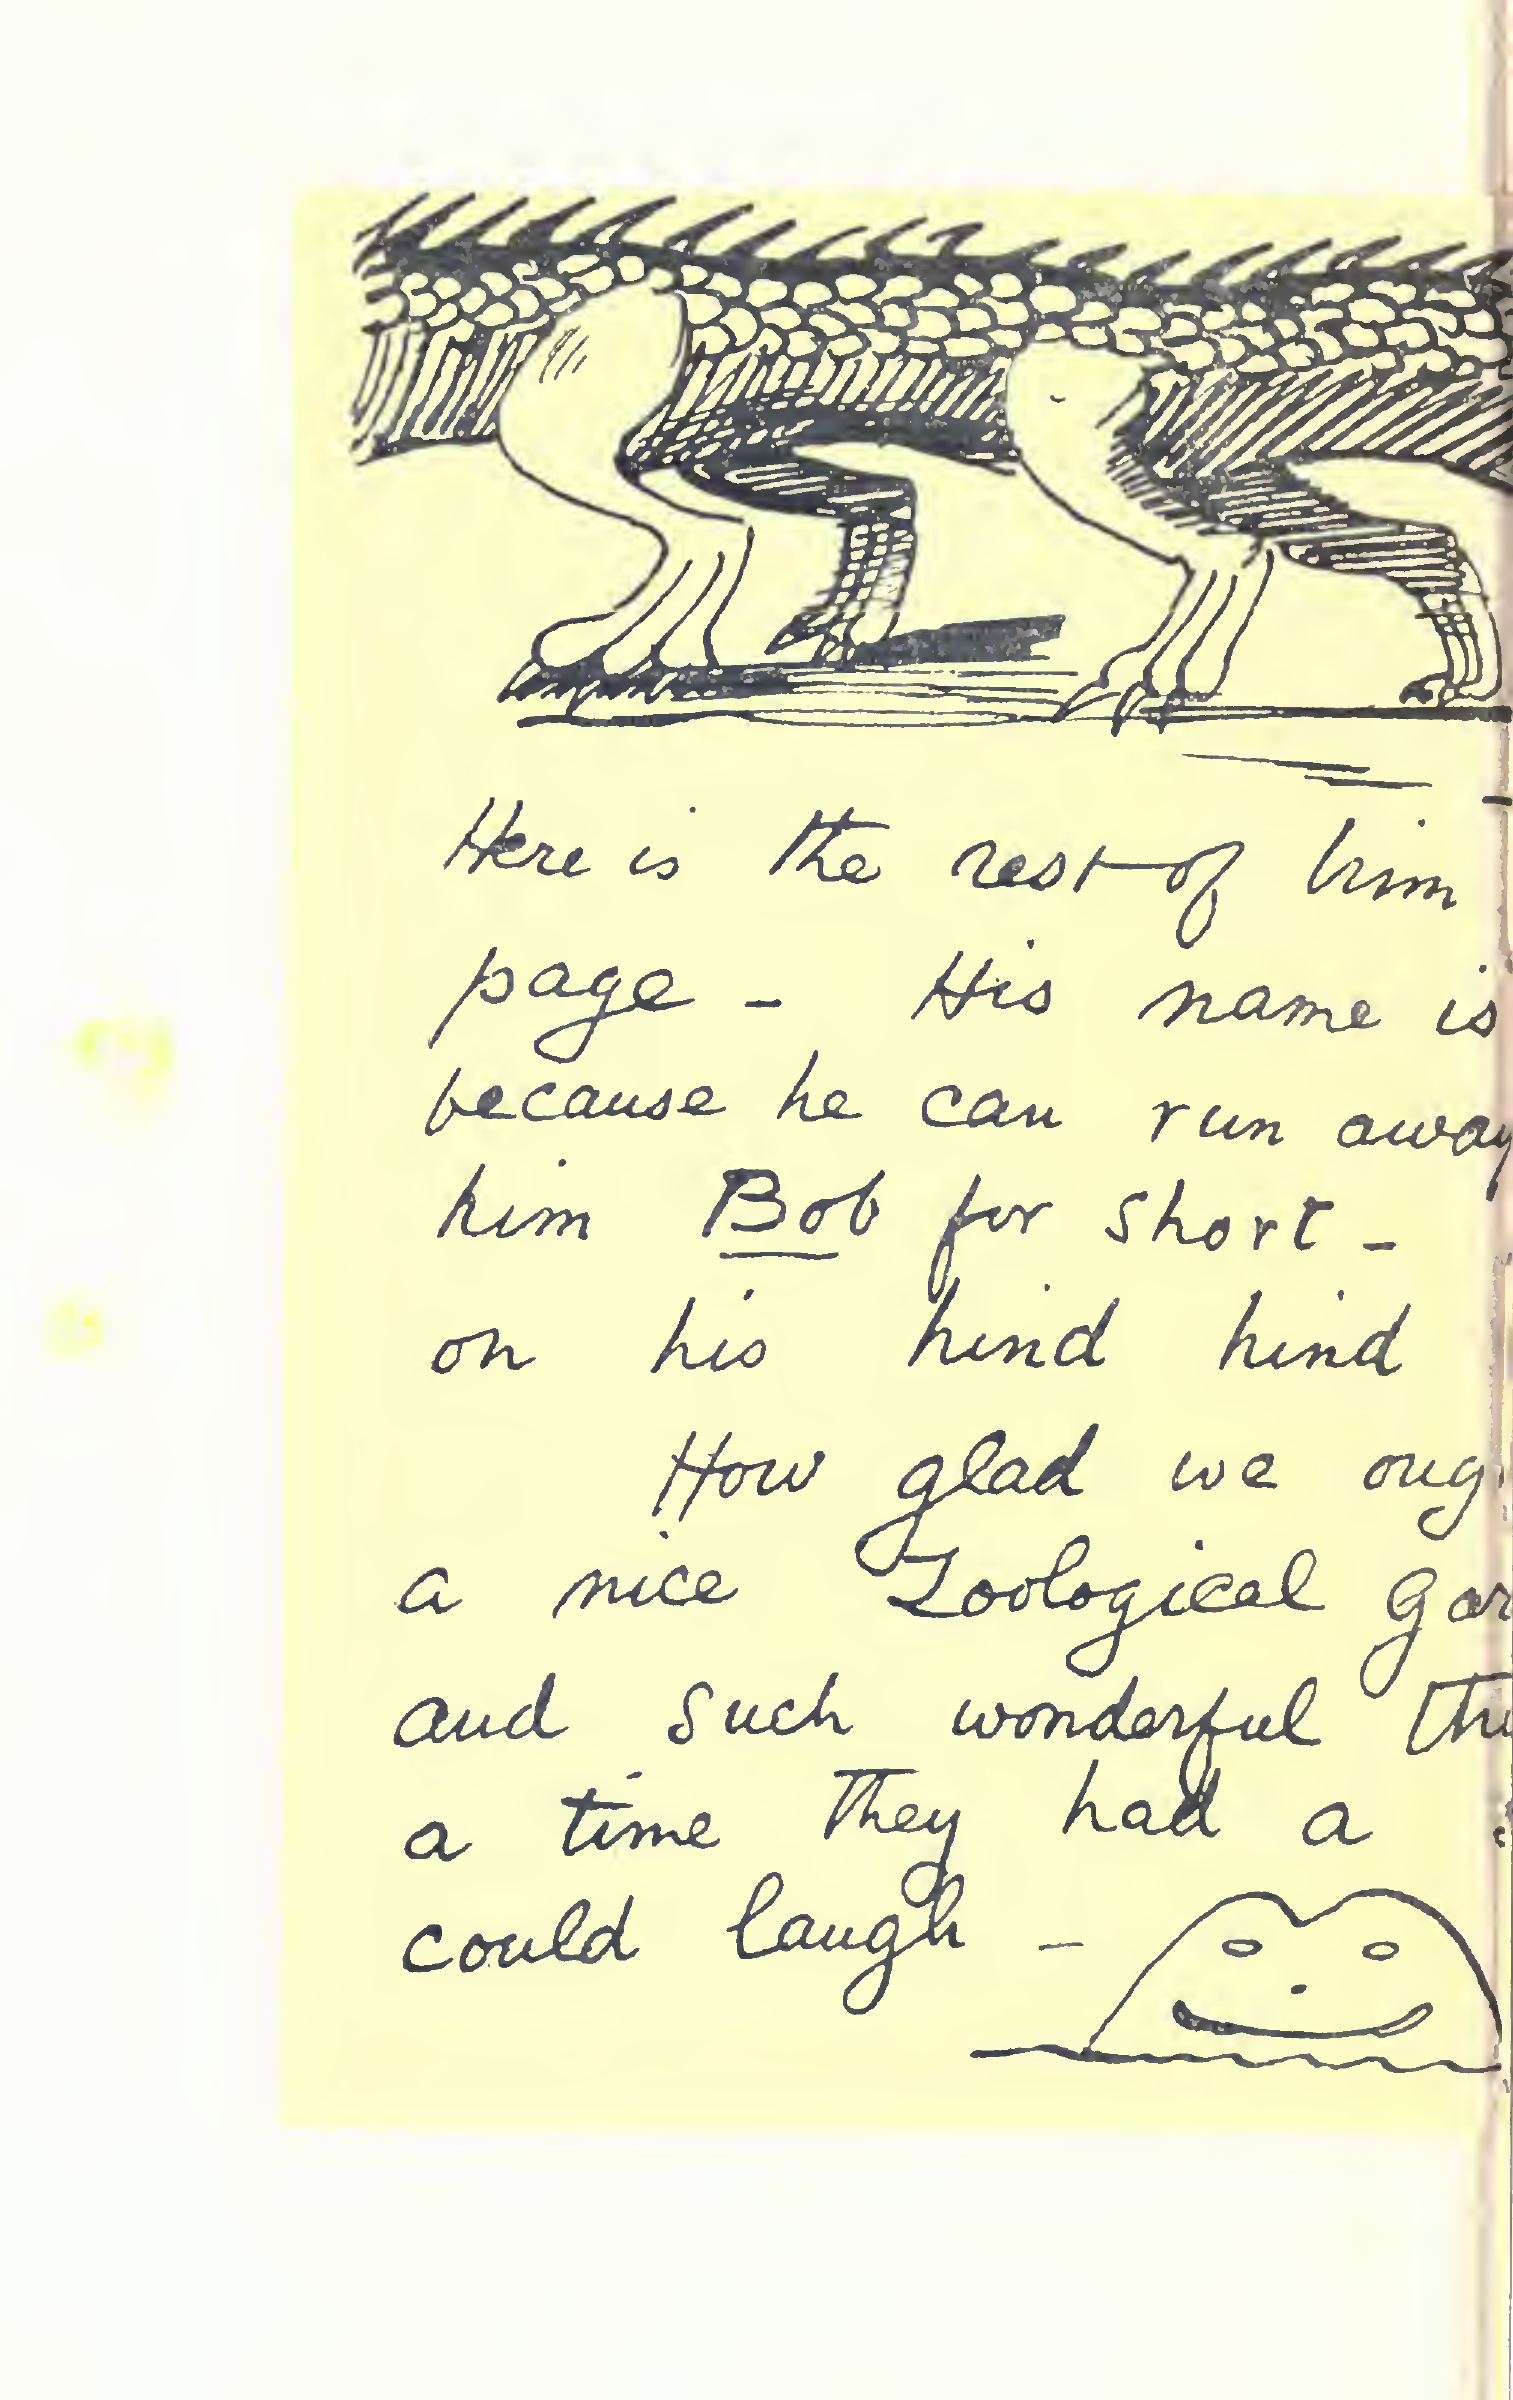 Here is the rest of him
page - His name is
because he can run away
him Bob for short -
on his hind hind
How glad we oug
a nice Zoological Gar
and such wonderful thi
a time they had a
could laugh -